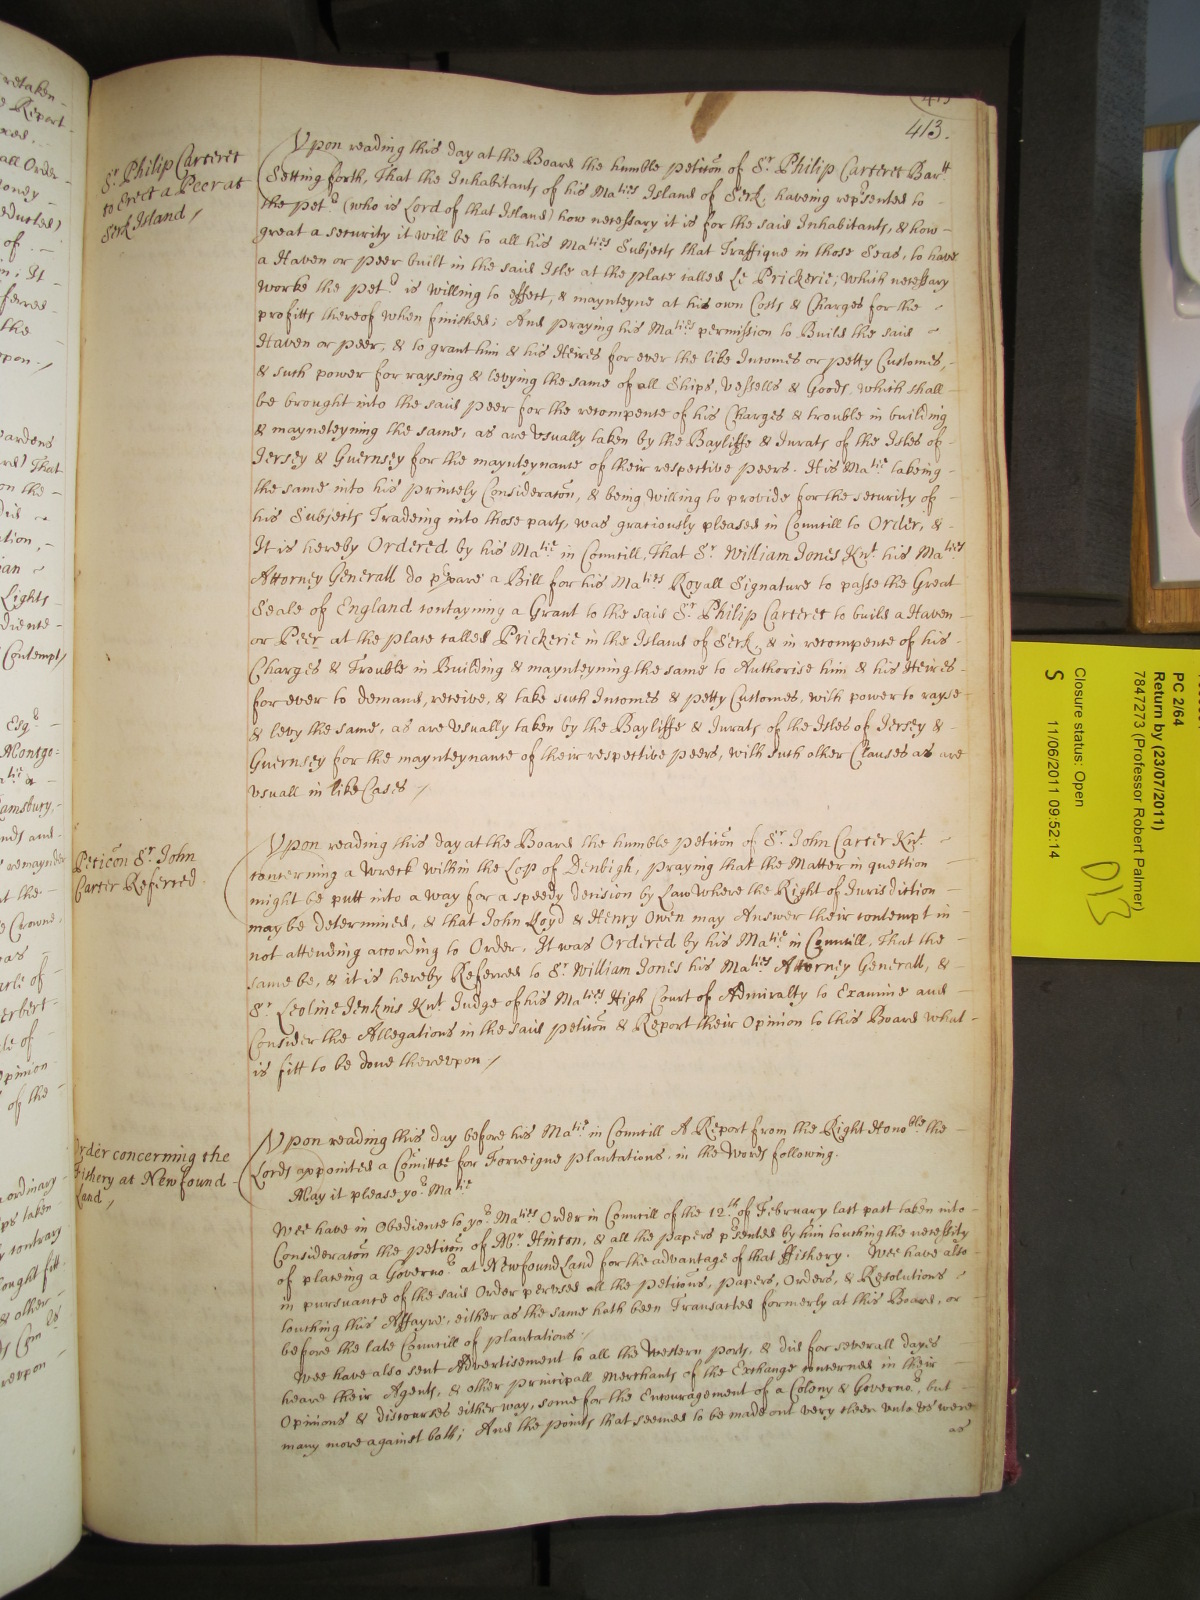 413.
Sr. Philip Carteret
to Erect a Peer at
Serk Island /
Vpon reading this day at the Board the humble petiton of Sr. Philip Carteret Bartt.
Setting forth, That the Inhabitants of his Maties Island of Serk, haveing rep'sented to -
the petr. (who is Lord of that Island) how necessary it is for the said Inhabitants, & how -
great a security it will be to all his Maties Subjects that Traffique in those Seas, to have
a Haven or peer built in the said Isle at the place called Le Prickerie; which necessary
worke the petr. is willing to effect, & maynteyne at his own Costs & Charges for the -
profitts thereof when finished; And praying his Maties permission to Build the said -
Haven or peer, & to grant him & his Heires for ever the like Incomes or petty Customes,
& such power for raysing & levying the same of all Ships, vessells & Goods, which shall
be brought into the said peer for the recompence of his Charges & trouble in building
& mayneteyning the same, as are vsually taken by the Bayliffe & Jurats of the Isles of
Jersey & Guernsey for the maynteynance of their respective peers. His Matie takeing -
the same into his princely Consideraton, & being willing to provide for the security of -
his Subjects Tradeing into those parts, was graciously pleased in Councill to Order, & -
It is hereby Ordered by his Matie in Councill, That Sr. William Jones Knt. his Maties
Attorney Generall do p'pare a Bill for his Maties Royall Signature to passe the Great
Seale of England contayning a Grant to the said Sr. Philip Carteret to build a Haven -
or Peer at the place called Prickerie in the Island of Serk, & in recompence of his -
Charges & Trouble in Building & maynteyning the same to Authorise him & his Heires -
for ever to demand, receive, & take such Incomes & petty Customes, with power to rayse -
& levy the same, as are vsually taken by the Bayliffe & Jurats of the Isles of Jersey & -
Guernsey for the maynteynance of their respective peers, with such other Clauses as are
vsuall in like Cases /
Peticon Sr. John
Carter Referred.
Vpon reading this day at the Board the humble petiton of Sr. John Carter Knt. -
concerning a Wreck within the Lop of Denbigh, praying that the Matter in question -
might be putt into a way for a speedy decision by Law where the Right of Jurisdiction -
may be determined, & that John Lloyd & Henry Owen may Answer their contempt in -
not attending according to Order. It was Ordered by his Matie in Councill, That the -
same be, & it is hereby Referred to Sr. William Jones his Maties Attorney Generall, & -
Sr. Leoline Jenkins Knt. Judge of his Maties High Court of Admiralty to Examine and -
Consider the Allegations in the said petiton & Report their Opinion to this Board what -
is fitt to be done therevpon /
Order concerning the
Fishery at New found -
Land /
Vpon reading this day before his Matie in Councill A Report from the Right Honoble the -
Lords appointed a Comittee for Forreigne plantations, in the words following.
May it please yor. Matie
Wee have in Obedience to yor. Maties Order in Councill of the 12th of February last past taken into -
Consideraton the petiton of Mr. Hinton, & all the papers p'sented by him touching the necessity
of placeing a Governor. at NewfoundLand for the advantage of that ffishery. Wee have also
in pursuance of the said Order perused all the petitons, papers, Orders, & Resolutions -
touching this Affayre, either as the same hath been Transacted formerly at this Board, or -
before the late Councill of plantations. /
Wee have also sent Advertisement to all the Western ports, & did for severall dayes
heare their Agents, & other principall Merchants of the Exchange concerned in their -
Opinions & discourses either way, some for the Encouragement of a Colony & Governor., but -
many more against both; And the points that seemed to be made out very cleer vnto vs were
as
PC 2/64
Return by (23/07/2011)
7847273 (Professor Robert Palmer)
Closure status: Open
S 11/06/2011 09:52:14
D13